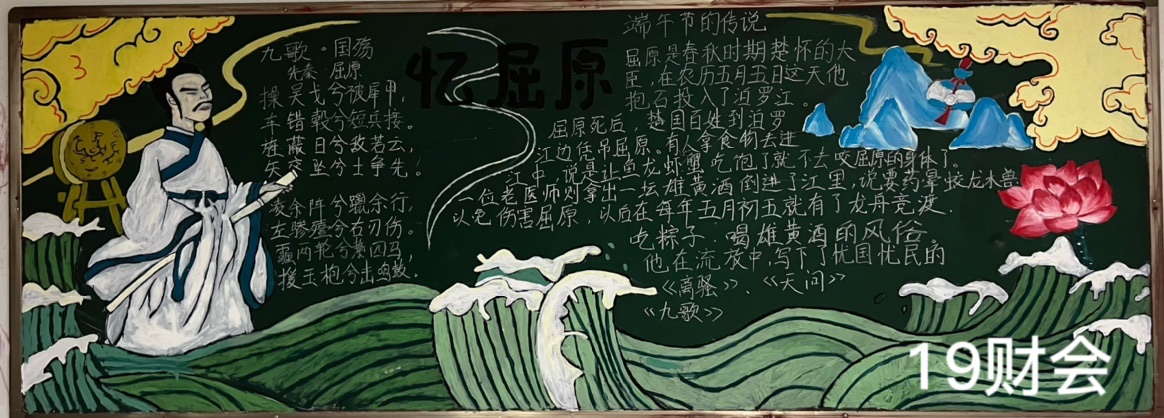 九歌·国殇
先秦 屈原
操吴戈兮被犀甲，
车错毂兮短兵接。
旌蔽日兮敌若云，
矢交坠兮士争先。
凌余阵兮躐余行，
左骖殪兮右刃伤。
霾两轮兮絷四马，
援玉枹兮击鸣鼓。
忆屈原
端午节的传说
屈原是春秋时期楚怀的大
臣，在农历五月五日这天他
抱石投入了汨罗江。
屈原死后，楚国百姓到汨罗
江边凭吊屈原。有人拿食物丢进
江中，说是让鱼龙虾蟹吃饱了就不去咬屈原的身体了。
一位老医师则拿出一坛雄黄酒倒进了江里，说要药晕蛟龙水兽
以免伤害屈原，以后在每年五月初五就有了龙舟竞渡
吃粽子、喝雄黄酒的风俗
他在流放中，写下了忧国忧民的
《离骚》、《天问》
《九歌》
19财会